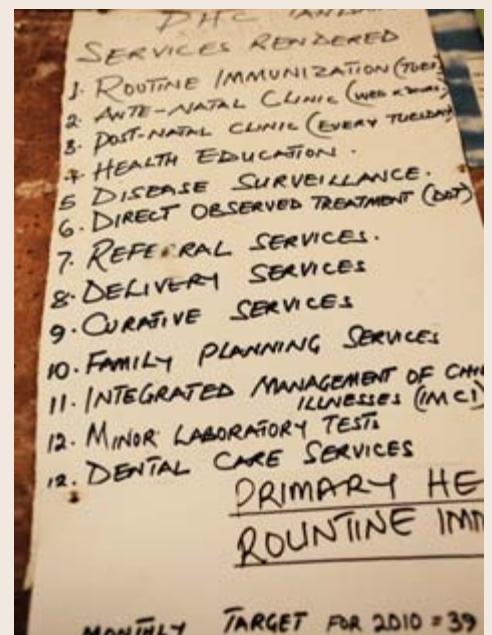 PHC
SERVICES RENDERED
1. ROUTINE IMMUNIZATION (TUES
2. ANTE-NATAL CLINIC (WED & THURS)
3. POST-NATAL CLINIC (EVERY TUESDAY)
4. HEALTH EDUCATION.
5 DISEASE SURVEILLANCE.
6. DIRECT OBSERVED TREATMENT (DOT)
7. REFERRAL SERVICES.
8. DELIVERY SERVICES
9. CURATIVE SERVICES
10. FAMILY PLANNING SERVICES
11. INTEGRATED MANAGEMENT OF CHI
ILLNESSES (IMCI)
12. MINOR LABORATORY TESTS
12. DENTAL CARE SERVICES
PRIMARY HE
ROUNTINE IMM
MONTHLY TARGET FOR 2010 = 39